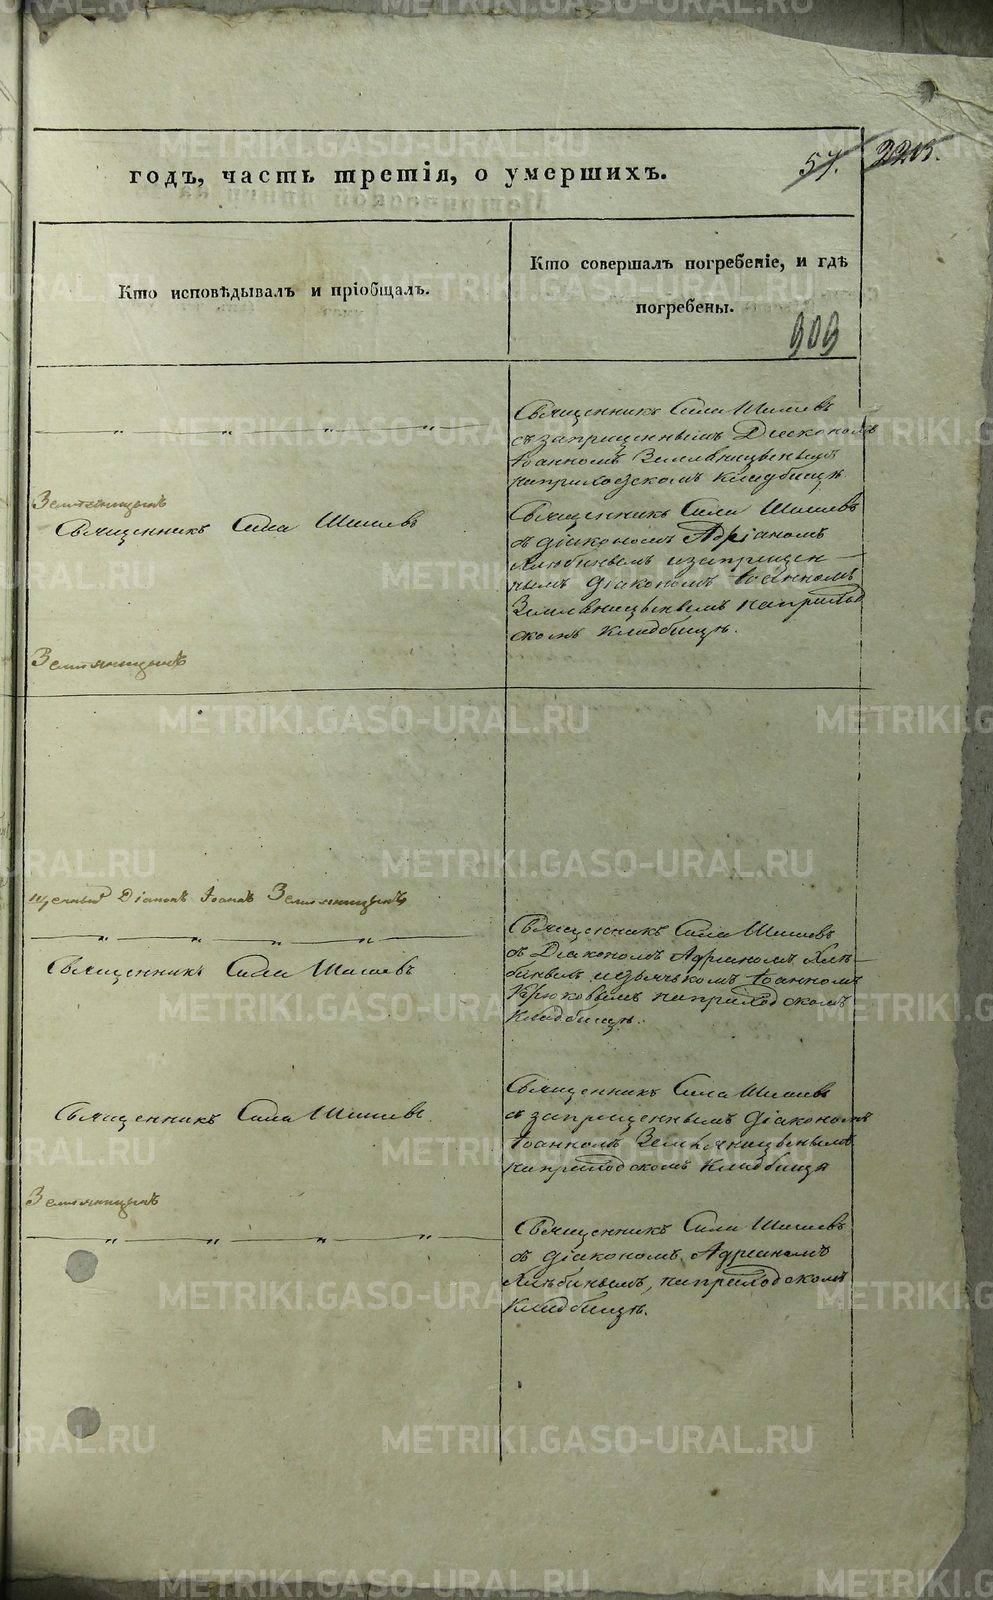 годъ, часть третія, о умершихъ.
57.
2205.
Кто исповѣдывалъ и пріобщалъ.
Кто совершалъ погребеніе, и гдѣ
погребены.
909
Священникъ Сила Шишевъ
съ запрещеннымъ Діакономъ
Іоанномъ Земляницынымъ
на приходскомъ кладбищѣ.
Земляницынъ
Священникъ Сила Шишевъ
Священникъ Сила Шишевъ
съ діакономъ Адріаномъ
Хлѣбинымъ и запрещен-
нымъ діакономъ Іоанномъ
Земляницынымъ на приход
скомъ кладбищѣ.
Земляницынъ
щенный Діаконъ Іоаннъ Земляницынъ
Священникъ Сила Шишевъ
Священникъ Сила Шишевъ
съ Діакономъ Адріаномъ Хлѣ-
бинымъ и дьячкомъ Іоанномъ
Крюковымъ на приходскомъ
кладбищѣ.
Священникъ Сила Шишевъ
Священникъ Сила Шишевъ
съ запрещеннымъ діакономъ
Іоанномъ Земляницынымъ
на приходскомъ кладбищѣ
Земляницынъ
Священникъ Сила Шишевъ
съ діакономъ Адріаномъ
Хлѣбинымъ, на приходскомъ
кладбищѣ.
METRIKI.GASO-URAL.RU